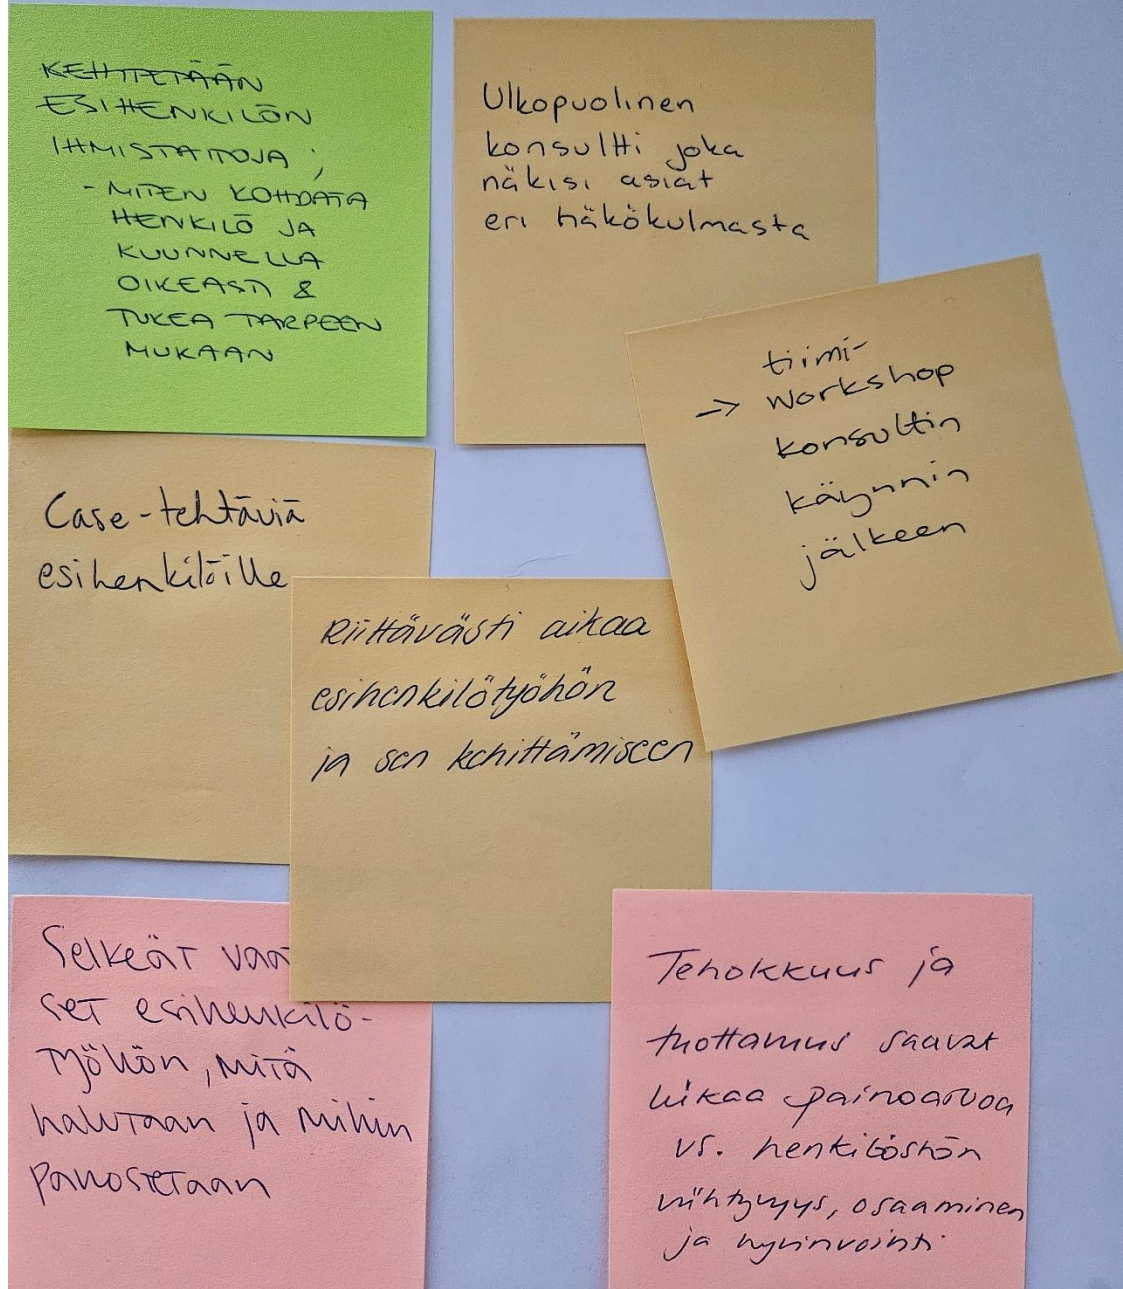 KEHITETÄÄN
ESIHENKILÖN
IHMISTAITOJA ;
- MITEN KOHDATA
HENKILÖ JA
KUUNNELLA
OIKEASTI &
TUKEA TARPEEN
MUKAAN
Ulkopuolinen
konsultti joka
näkisi asiat
eri näkökulmasta
tiimi-
-> workshop
konsultin
käynnin
jälkeen
Case-tehtäviä
esihenkilöille
Riittävästi aikaa
esihenkilötyöhön
ja sen kehittämiseen
Selkeät
set esihenkilö-
työhön, mitä
halutaan ja mihin
panostetaan
Tehokkuus ja
tuottavuus saavat
liikaa painoarvoa
vs. henkilöstön
viihtyvyys, osaaminen
ja hyvinvointi